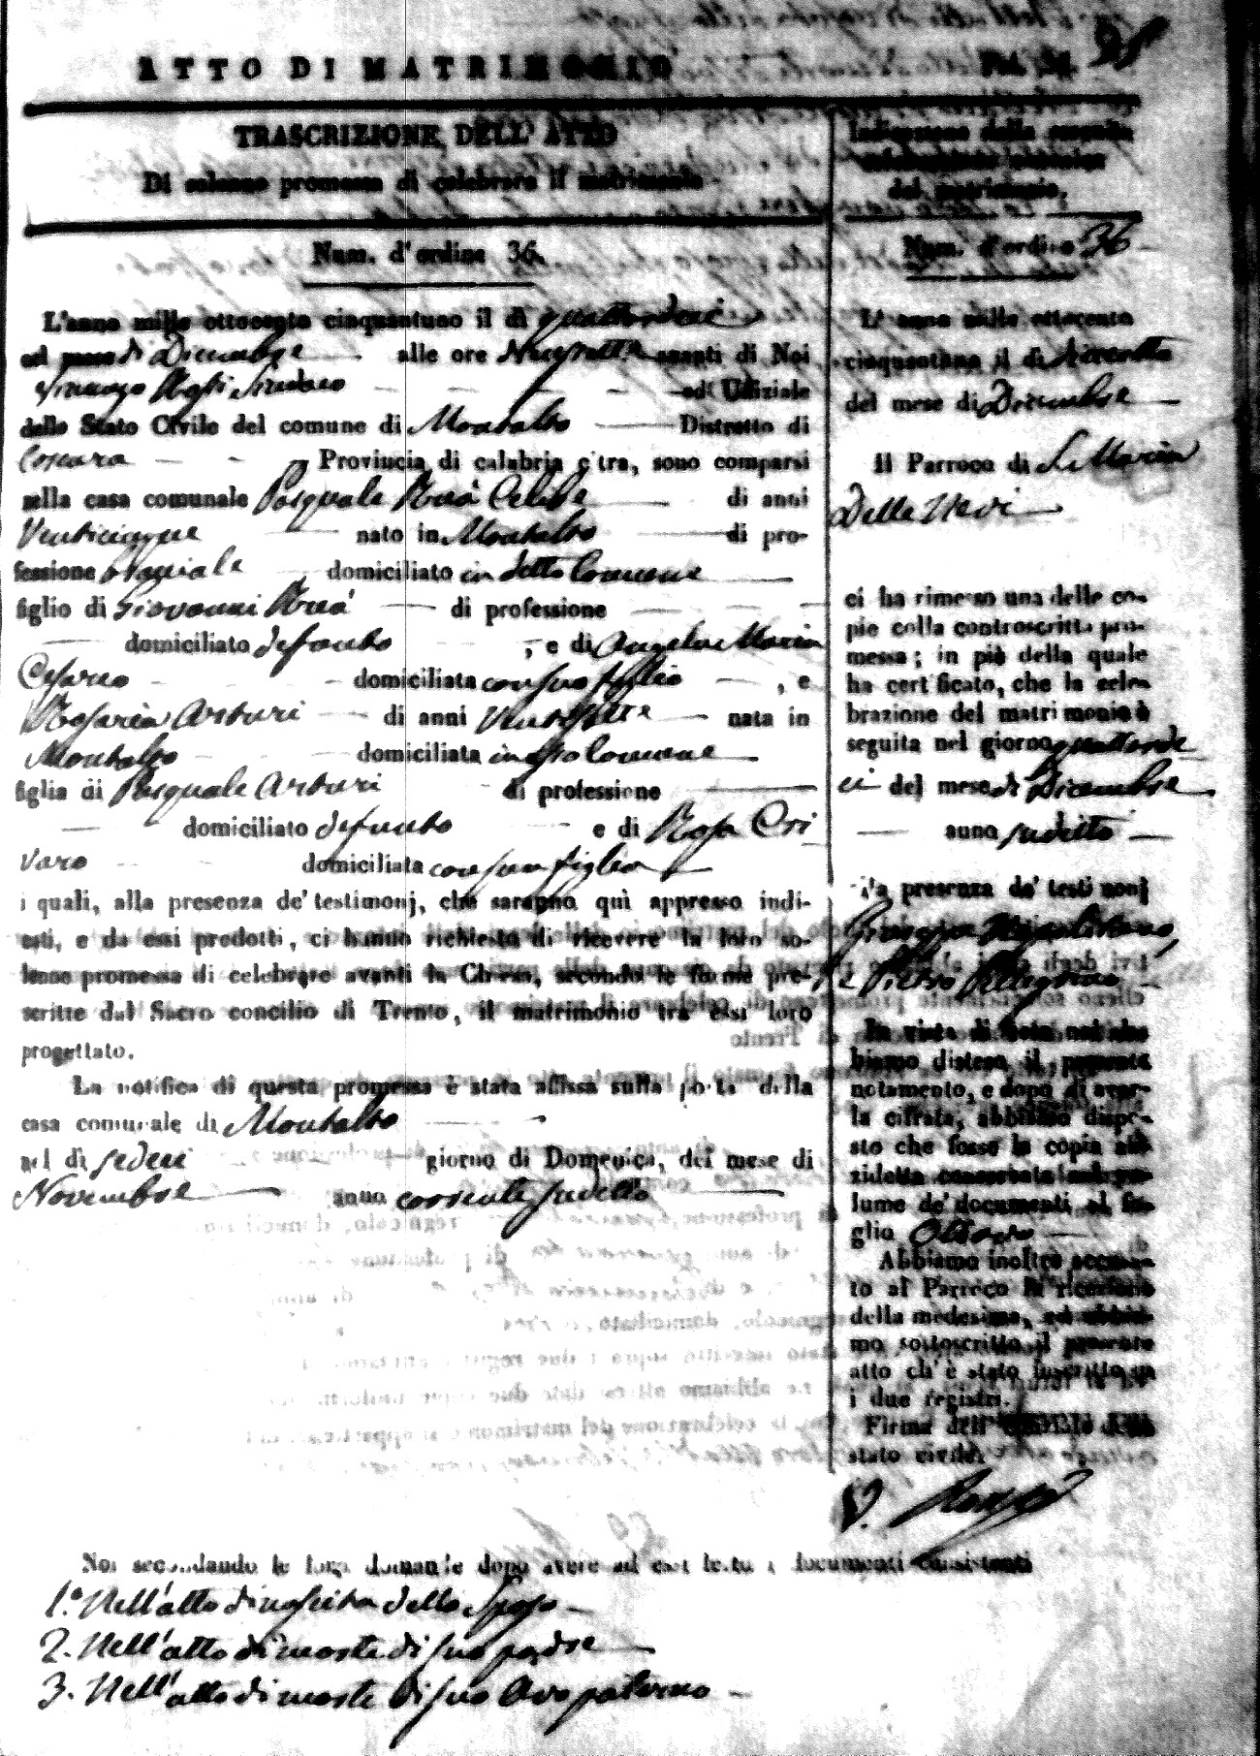 ATTO DI MATRIMONIO
TRASCRIZIONE DELL' ATTO
Di solenne promessa di celebrare il matrimonio
Num. d'ordine 36.
L'anno mille ottocento cinquantuno il dì quattordeci
nel mese di Dicembre alle ore avanti di Noi
Sindaco ed Ufiziale
dello Stato Civile del comune di Montalto Distretto di
Cosenza Provincia di calabria citra, sono comparsi
nella casa comunale Pasquale Celibe di anni
Venticinque nato in Montalto di pro-
fessione domiciliato in detto Comune
figlio di Giovanni di professione
domiciliato defonto , e di Angela Maria
Cesareo domiciliata con suo figlio , e
Rosaria Arturi di anni Ventisette nata in
Montalto domiciliata in esso Comune
figlia di Pasquale Arturi di professione
domiciliato defunto e di Rosa Cri
varo domiciliata con sua figlia
i quali, alla presenza de' testimonj, che saranno qui appresso indi-
cati, e da essi prodotti, ci hanno richiesto di ricevere la loro so-
lenne promessa di celebrare avanti la Chiesa, secondo le forme pre-
scritte dal Sacro concilio di Trento, il matrimonio tra essi loro
progettato.
La notifica di questa promessa è stata affissa sulla porta della
casa comunale di Montalto
nel dì sedeci giorno di Domenica, del mese di
Novembre anno corrente sudetto
Noi secondando le loro domande dopo avere ad essi letto i documenti consistenti
1.° Nell'atto di nascita dello Sposo
2. Nell'atto di morte di suo padre
3. Nell'atto di morte di suo Avo paterno
del matrimonio.
Num. d'ordine 36
L' anno mille ottocento
cinquantuno il dì
del mese di Dicembre
Il Parroco di S. Maria
Delle Nevi
ci ha rimesso una delle co-
pie colla controscritta pro-
messa; in piè della quale
ha certificato, che la cele-
brazione del matrimonio è
seguita nel giorno quattorde
ci del mese di Dicembre
anno sudetto
alla presenza de' testimonj
Giuseppe Napolitano,
e Pietro Pellegrino
In vista di esta noi ab-
biamo disteso il presente
notamento, e dopo di aver-
la cifrata, abbiamo dispo-
sto che fosse la copia an-
zidetta conservata nel vo-
lume de' documenti al fo-
glio Ottavo
Abbiamo inoltre accusa-
to al Parroco la ricezione
della medesima, ed abbia-
mo sottoscritto il presente
atto ch' è stato inscritto su
i due registri.
Firma dell' Ufiziale dello
stato civile.